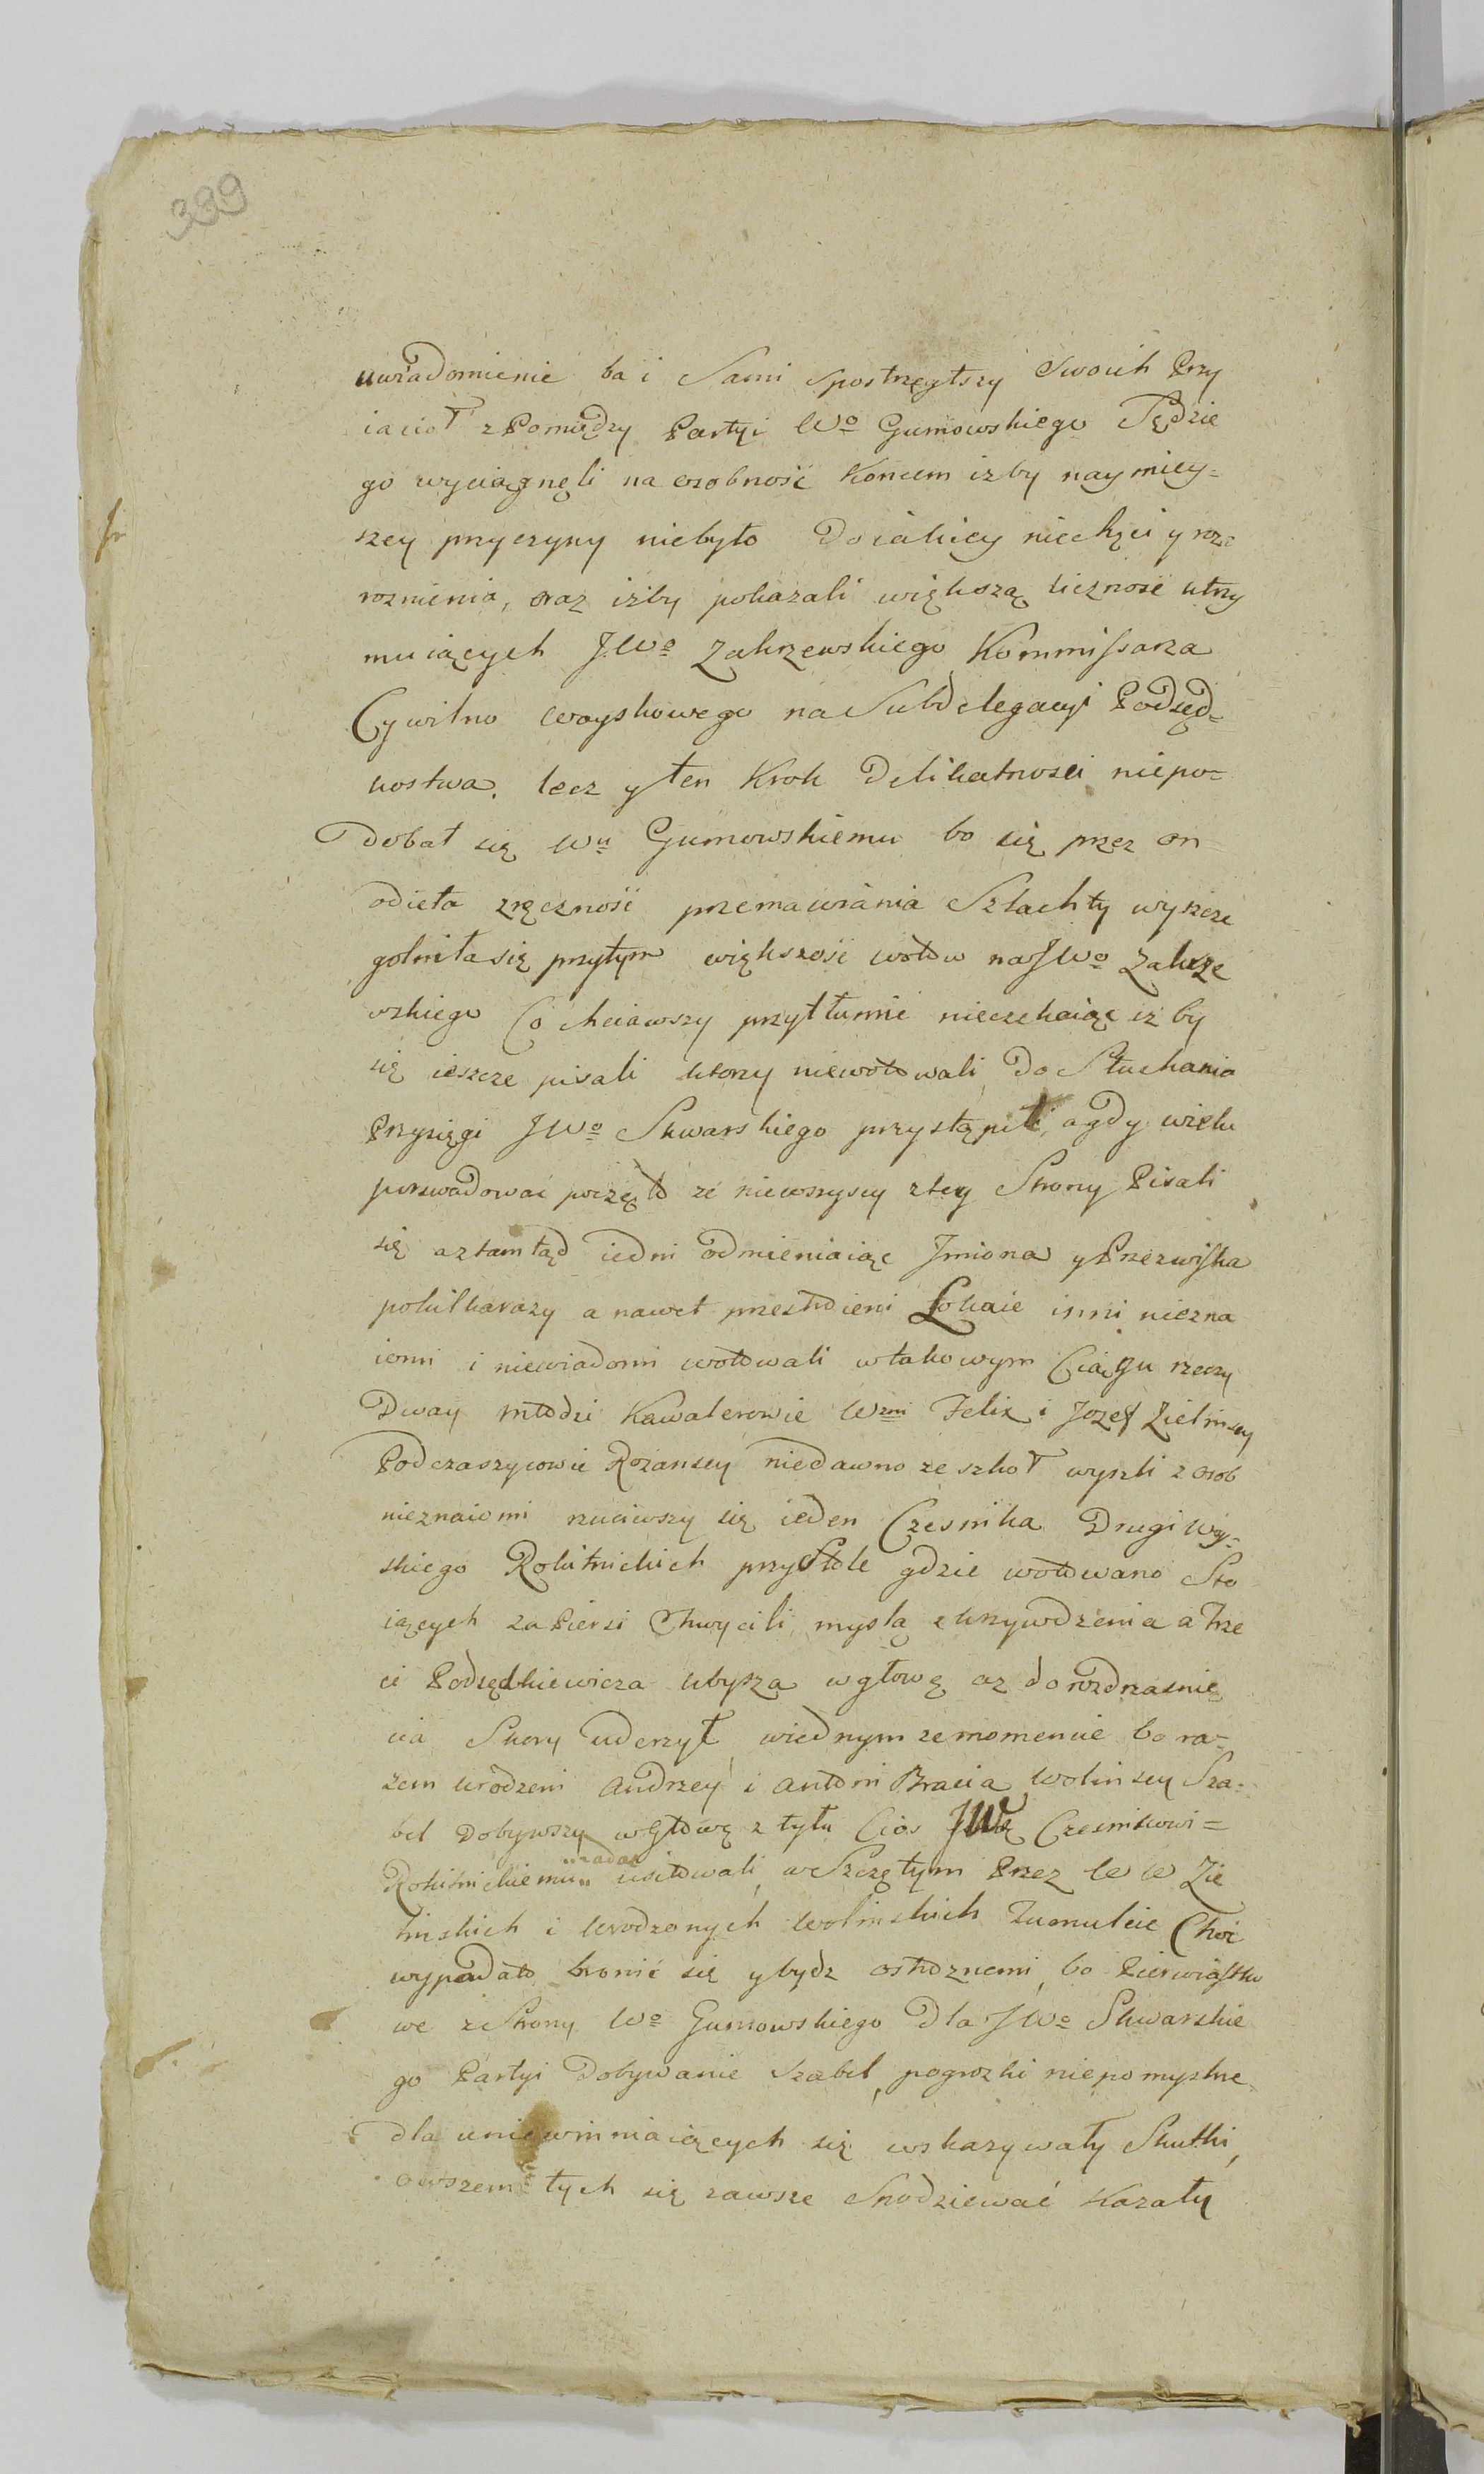 389
uwiadomienie ba i Sami spostrzegłszy Swoich Przy
iaciół z Pomiędzy Partyi Wo Gumowskiego Sędzie
go wyciągnęli na osobność Koncem izby naymiey=
szey przyczyny niebyło Do iakiey niechęci y roz=
roznienia, oraz iżby pokazali większą liczność utrzy
muiących JWo Zakrzewskiego Kommissarza
Cywilno woyskowego na Subdelegacyi Podsęd=
kostwa. lecz y ten Krok Delikatności niepo=
dobał się Wu Gumowskiemu bo się przez on
odieła zręczność przemawiania Szlachty wyszcze
golniła się przytym większość wotow na JWo Zakrze
wskiego Co chciawszy przytłumić nieczekaiąc iżby
się ieszcze pisali ktorzy niewotowali, do Słuchania
Przysięgi JWo Skwarskiego przystąpili, a gdy wielu
perswadować poczęło że niewszyscy z tey Strony Pisali
się a z tamtąd iedni odmieniaiąc Jmiona y Przezwiska
pokilkarazy a nawet przestroieni Lokaie inni niezna
iomi i niewiadomi wotowali w takowym Ciągu rzeczy
Dway młodzi Kawalerowie Wzni Felix i Jozef Zielinscy
Podczaszycowie Rozanscy niedawno ze szkoł wyszli z osob
nieznaiomi rzuciwszy się ieden Czesnika Drugi Woy=
skiego Rokitnickich przy Stole gdzie wotowano Sto
iących za Piersi Chwycili myslą ukrzywdzenia a Trze
ci Podsędkiewicza w głowę az do rozdrasnię
cia Skory uderzył, wiednymze momencie bo ra=
zem Urodzeni Andrzey i Antoni Bracia Wolinscy Sza=
bel Dobywszy w Głowę z tyłu Cios JW Czesnikowi=
Rokitnickiemu zadać usiłowali, w Szczętym Przez W W Zie
linskich i Urodzonych Wolinskich Tumulcie Choć
wypadało bronić się y bydz ostroznemi, bo Pierwiastko
we z Strony Wo Gumowskiego Dla JWo Skwarskie
go Partyi Dobywanie Szabel, pogrozki niepomyslne
dla uniewinniaiących się wskazywały Skutki,
owszem tych się zawsze Spodziewać Kazały